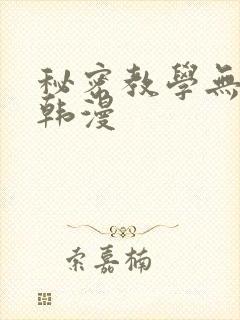 秘密教學無
韩漫
索嘉楠